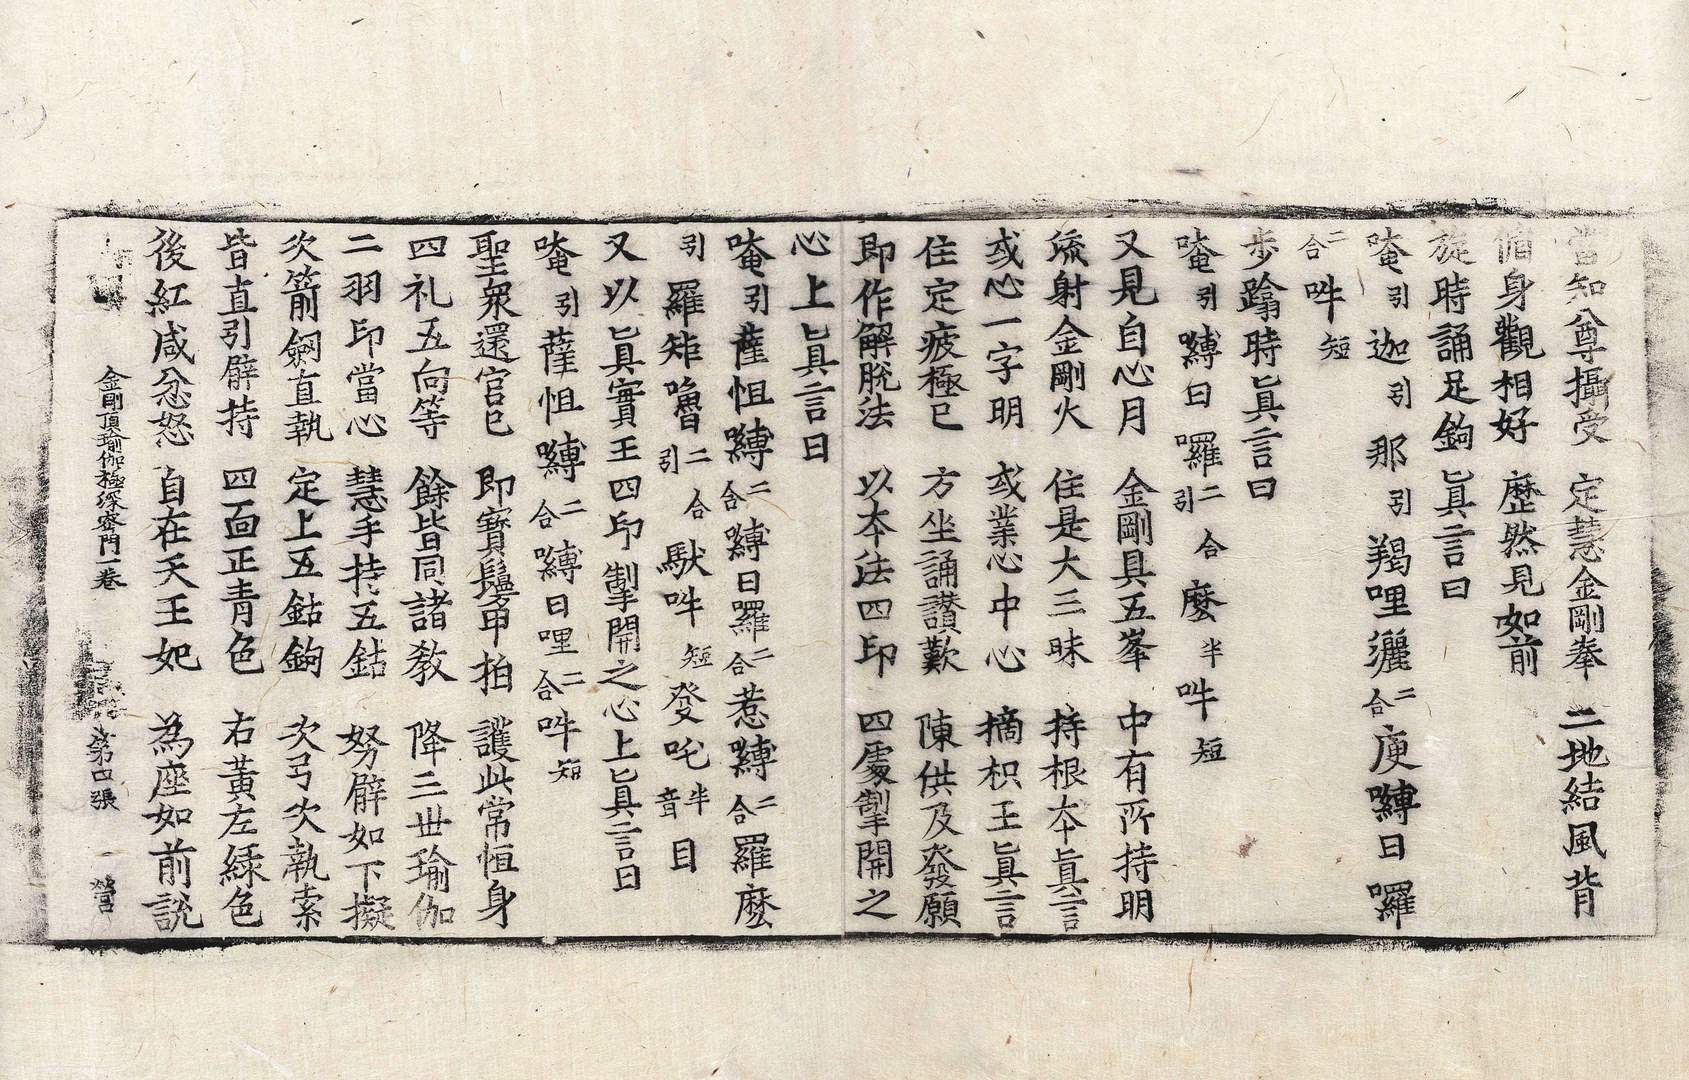 當知尊攝受 定慧金剛拳 二地結風背
脩身觀相好 歷然見如前
旋時誦足鉤真言曰
唵引迦引那引羯哩灑二合庾嚩曰囉
二合吽短
步蹹時真言曰
唵引嚩曰囉二合引麼半吽短
又見自心月 金剛具五峯 中有所持明
流射金剛火 住是大三昧 持根本真言
或心一字明 或業心中心 摘枳王真言
住定疲極已 方坐誦讃歎 陳供及發願
即作解脫法 以本法四印 四處掣開之
心上真言曰
唵引薩怛嚩二合嚩曰囉二合惹嚩二合羅麼
引羅矩嚕二合引馱吽短發吒半音目
又以真實王四印掣開之心上真言曰
唵引薩怛嚩二合嚩曰哩二合吽短
聖衆還宮已 即寶鬘甲拍 護此常恒身
四礼五向等 餘皆同諸教 降三世瑜伽
二羽印當心 慧手持五鈷 努臂如下擬
次箭劒直執 定上五鈷鉤 次弓次執索
皆直引臂持 四面正青色 右黃左綠色
後紅咸忿怒 自在天王妃 為座如前說
金剛頂瑜伽極深密門一卷 第四張 營